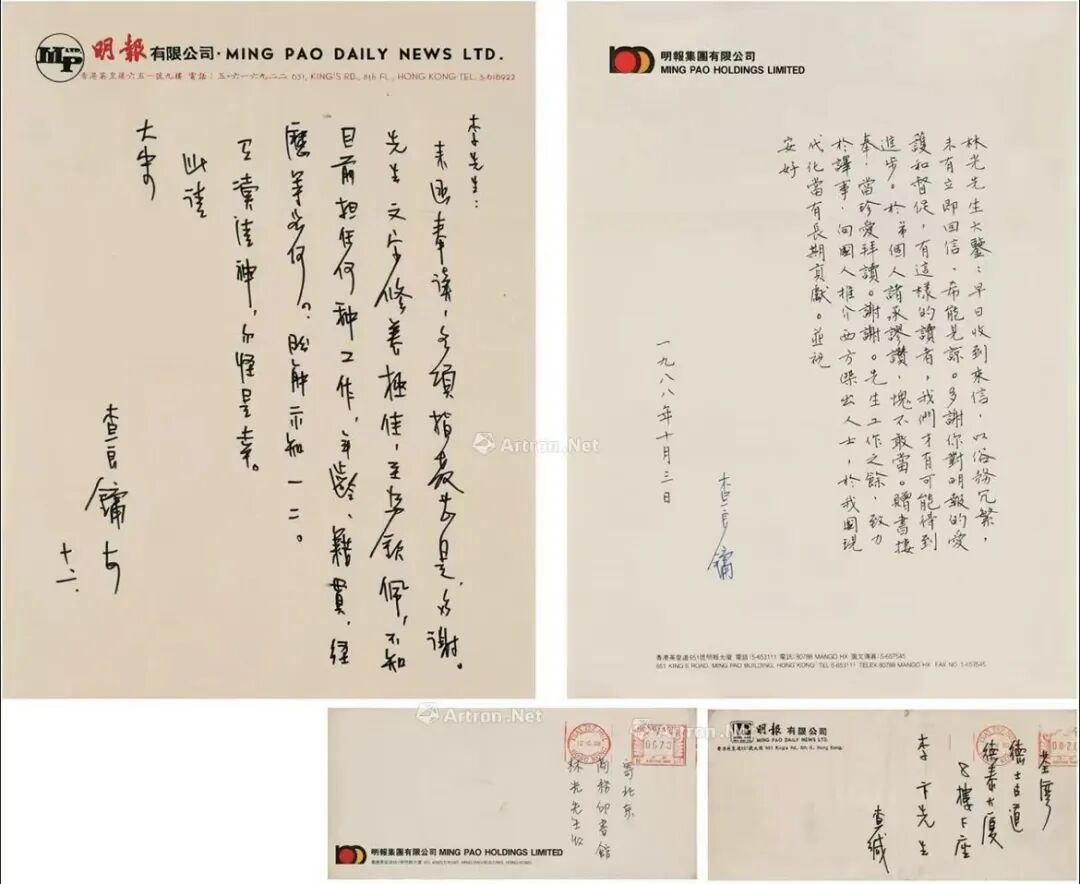 MP LTD.
明報有限公司·MING PAO DAILY NEWS LTD.
香港英皇道六五一號九樓 電話:五·六一六九二二 651, KING'S RD., 8th FL., HONG KONG TEL. 5-616922
李先生:
来函奉讀,各項指教甚是,多謝。
先生文字修養極佳,至为欽佩,不知
目前担任何种工作,年齡、籍貫、經
歷等為何?盼能示知一二。
有瀆清神,勿怪是幸。
此請
大安
查良鏞上
十、二
明報集團有限公司
MING PAO HOLDINGS LIMITED
林光先生大鑒:早日收到來信,以俗務冗繁,
未有立即回信,希能見諒。多謝你對明報的愛
護和督促,有這樣的讀者,我們才有可能得到
進步。於弟個人諸承謬讚,愧不敢當。贈書樓
奉,當珍愛拜讀。謝謝。先生工作之餘,致力
於譯事,向國人推介西方傑出人士,於我國現
代化當有長期貢獻。並祝
安好
查良鏞
一九八八年十月三日
香港英皇道651號明報大廈 電話:5-653111 電訊:80788 MANGO HX 圖文傳真:5-657545
651 KING'S ROAD, MING PAO BUILDING, HONG KONG TEL 5-653111 TELEX 80788 MANGO HX FAX NO. 5-657545
Artron.Net
Artron.Net
Artron.Net
寄北京
商務印書館
林光先生收
明報集團有限公司 MING PAO HOLDINGS LIMITED
明報有限公司
MING PAO DAILY NEWS LTD.
荃灣
德士古道
德泰大厦
8樓F座
李卞先生
查緘